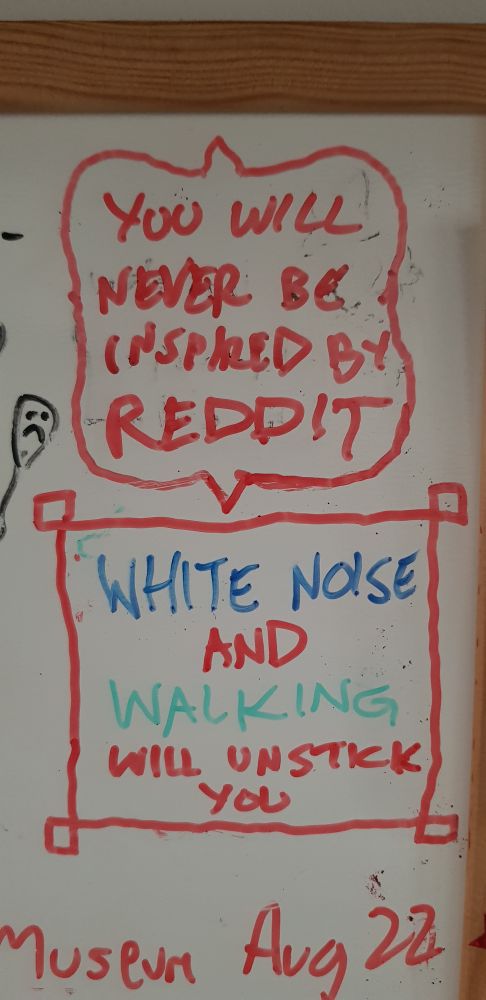 YOU WILL
NEVER BE
INSPIRED BY
REDDIT
WHITE NOISE
AND
WALKING
WILL UNSTICK
YOU
Museum Aug 22